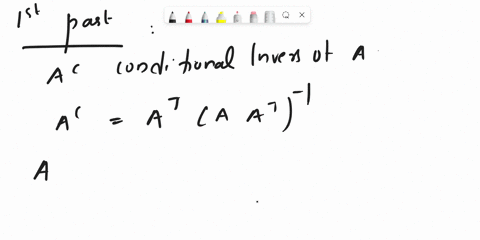 1st past :
A^c conditional Invers of A
A^c = A^T (A A^T)^-1
A